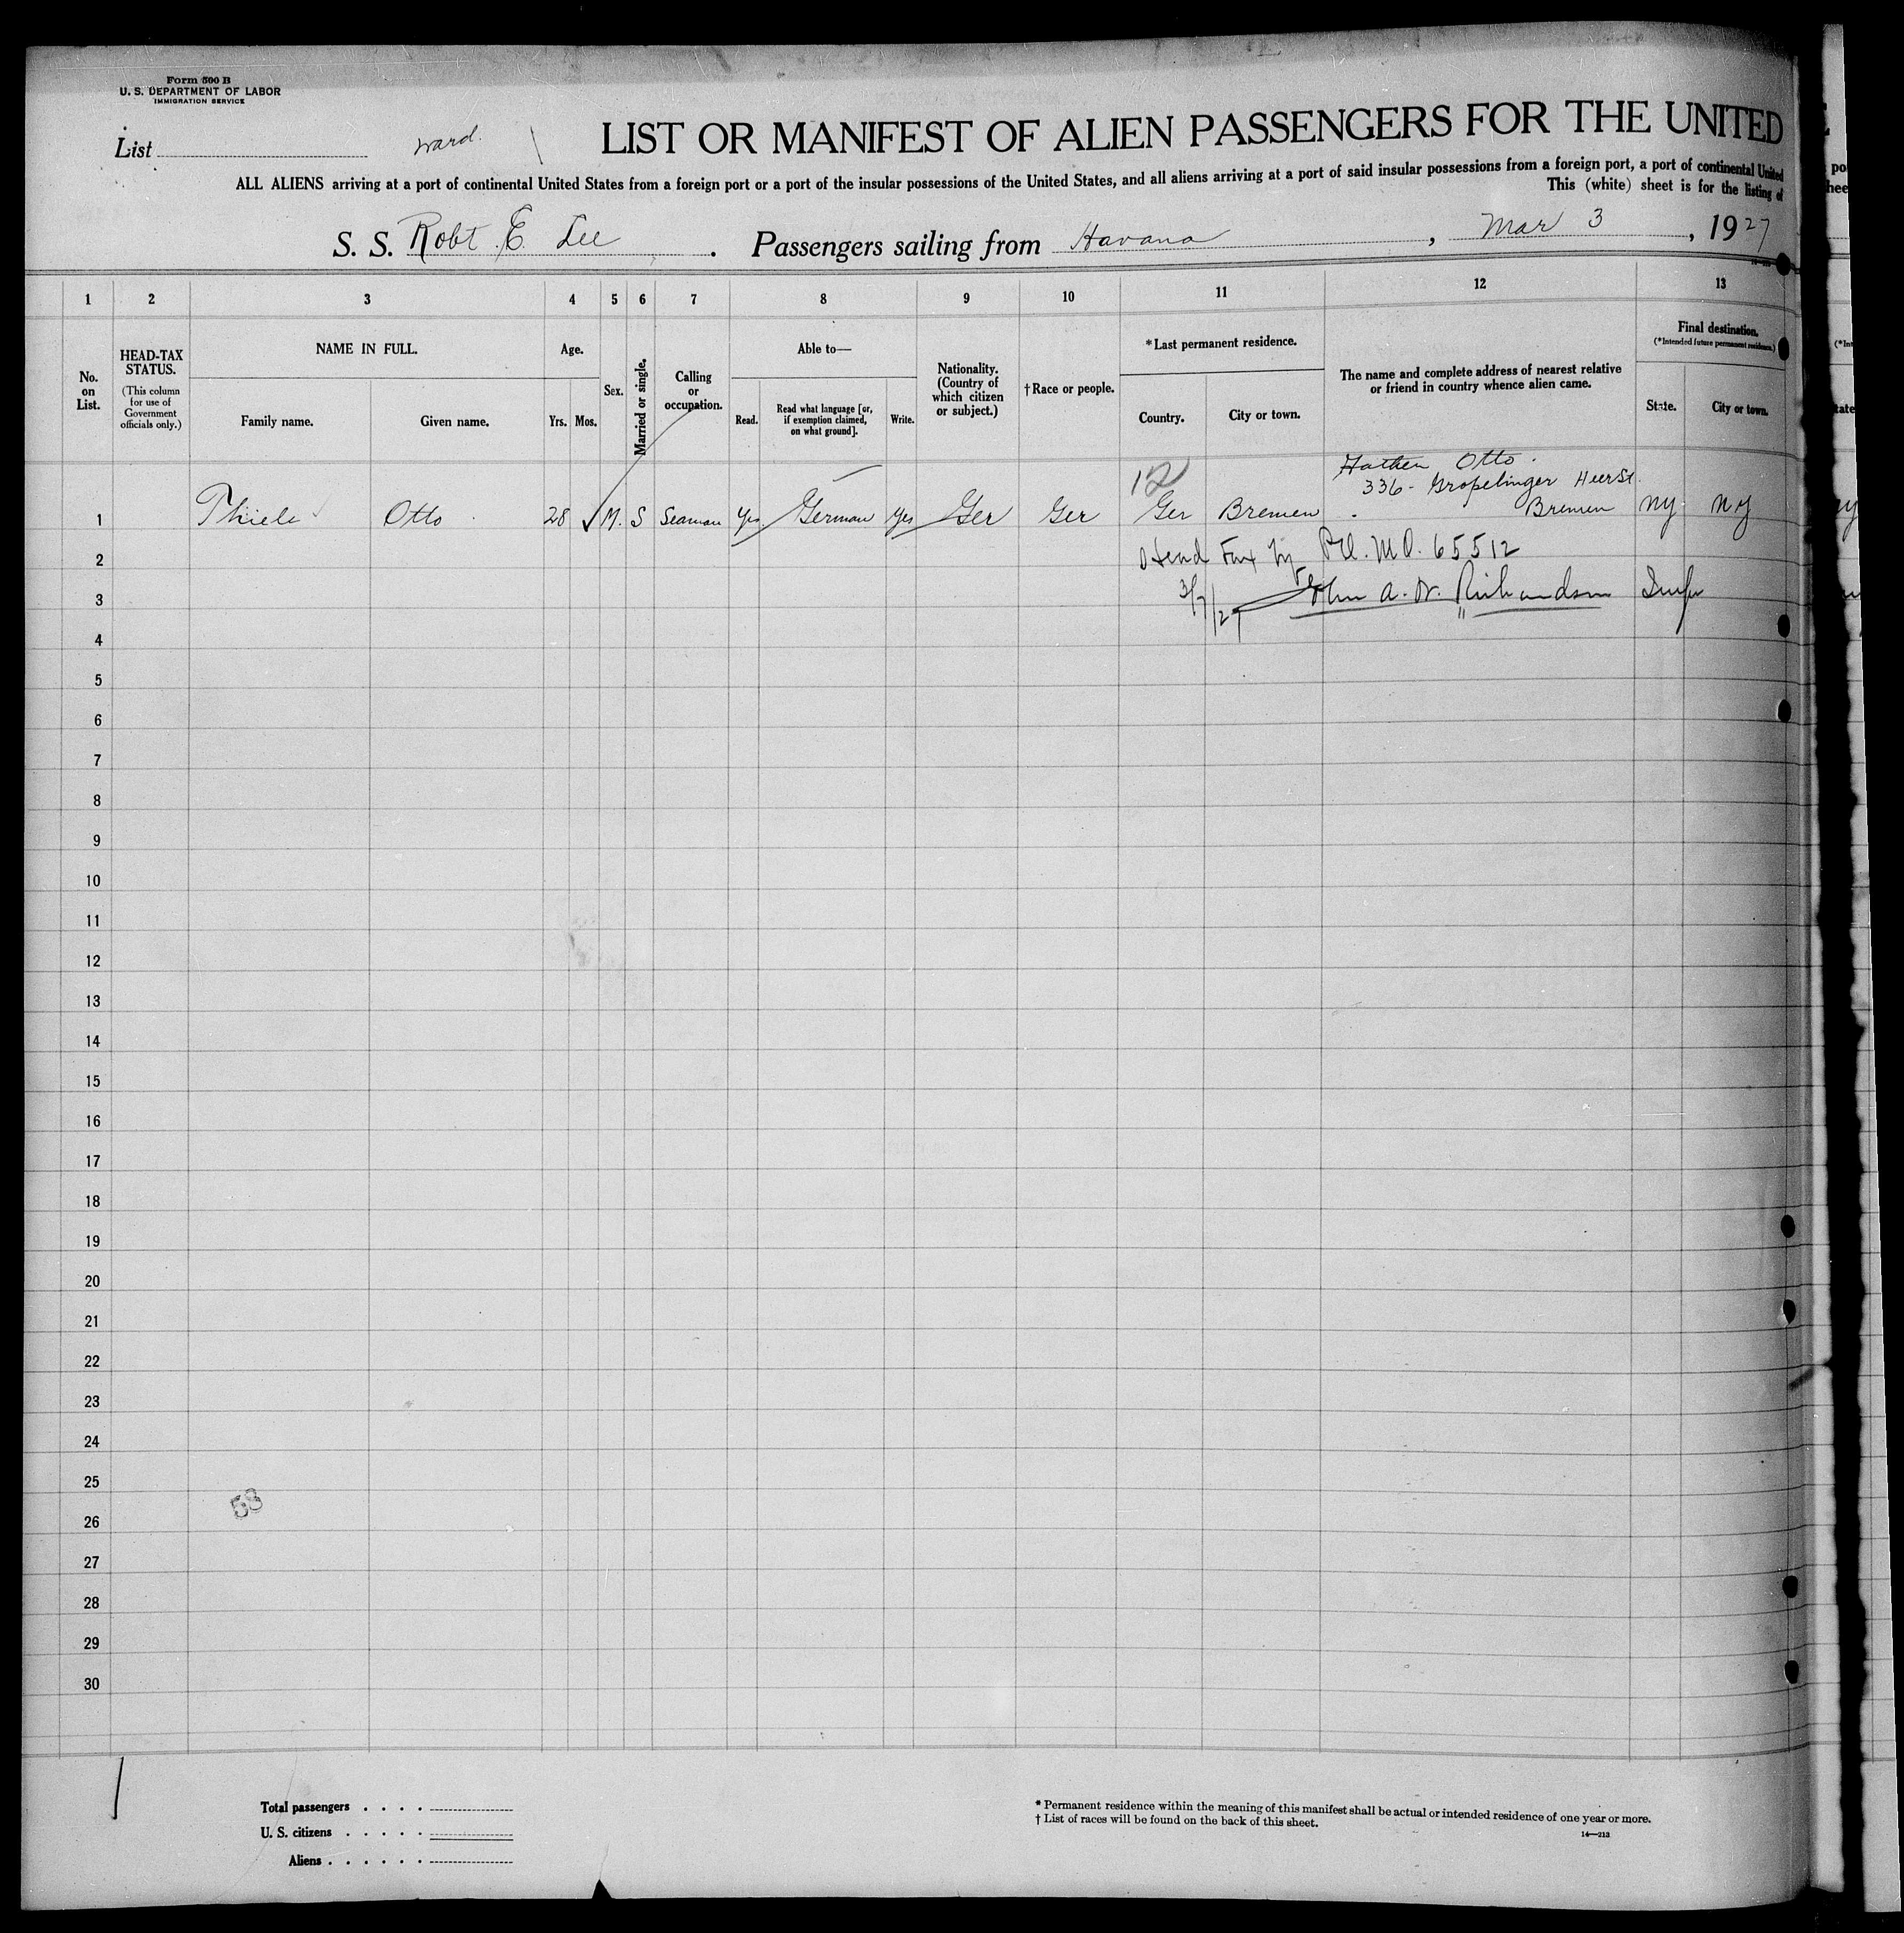 Form 500 B
U. S. DEPARTMENT OF LABOR
IMMIGRATION SERVICE
List
LIST OR MANIFEST OF ALIEN PASSENGERS FOR THE UNITED
ALL ALIENS arriving at a port of continental United States from a foreign port or a port of the insular possessions of the United States, and all aliens arriving at a port of said insular possessions from a foreign port, a port of continental United
This (white) sheet is for the listing of
S. S. Robt E. Lee . Passengers sailing from Havana , Mar 3 , 1927
1 2 3 4 5 6 7 8 9 10 11 12 13
No. on List.
HEAD-TAX STATUS.
(This column for use of Government officials only.)
NAME IN FULL.
Family name. Given name.
Age.
Yrs. Mos.
Sex.
Married or single.
Calling or occupation.
Able to—
Read. Read what language [or, if exemption claimed, on what ground]. Write.
Nationality. (Country of which citizen or subject.)
†Race or people.
*Last permanent residence.
Country. City or town.
The name and complete address of nearest relative or friend in country whence alien came.
Final destination.
(*Intended future permanent residence.)
State. City or town.
12 Father Otto
336 - Gropelinger HeerSt.
1 Thiele Otto 28 M. S Seaman Yes German Yes Ger Ger Ger Bremen Bremen NY NY
2 Head Tax by P.O. M.O. 65512
3 3/7/27 John A. W. Richardson Insp
4
5
6
7
8
9
10
11
12
13
14
15
16
17
18
19
20
21
22
23
24
25
58
26
27
28
29
30
Total passengers . . . .
U. S. citizens . . . . .
Aliens . . . . . .
* Permanent residence within the meaning of this manifest shall be actual or intended residence of one year or more.
† List of races will be found on the back of this sheet.
14—213